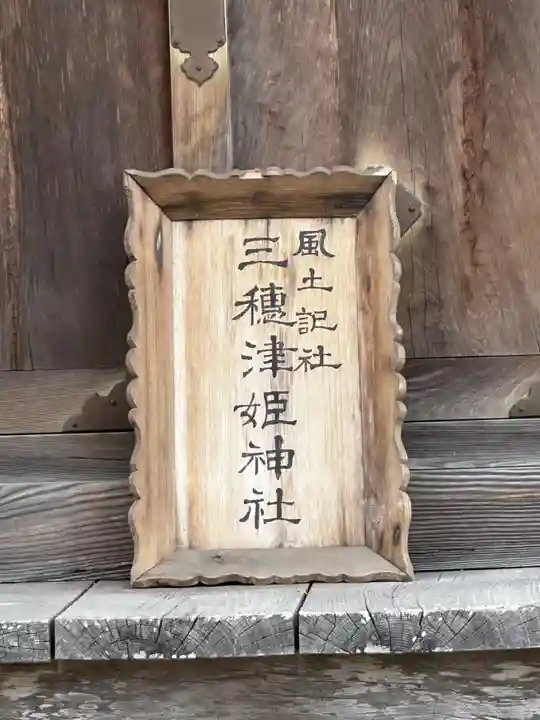 風土記社
三穂津姫神社